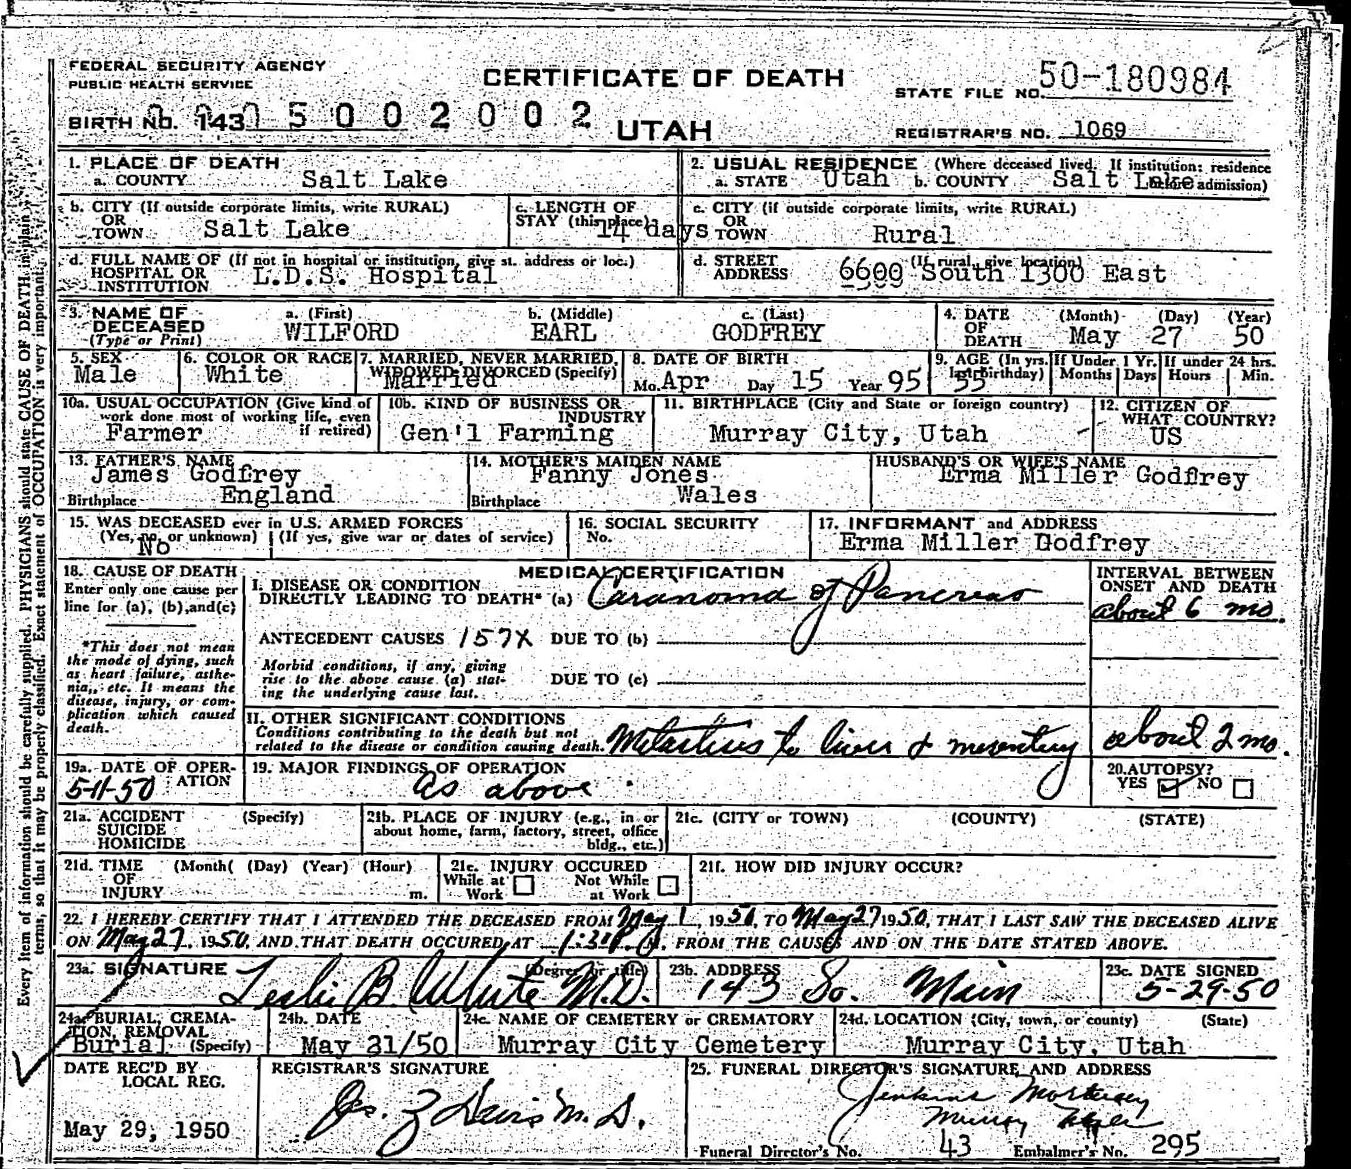 FEDERAL SECURITY AGENCY
PUBLIC HEALTH SERVICE
CERTIFICATE OF DEATH
STATE FILE NO. 50-180984
BIRTH NO. 143 5002002
UTAH
REGISTRAR'S NO. 1069
1. PLACE OF DEATH
a. COUNTY Salt Lake
2. USUAL RESIDENCE (Where deceased lived. If institution: residence before admission)
a. STATE Utah b. COUNTY Salt Lake
b. CITY (If outside corporate limits, write RURAL)
OR
TOWN Salt Lake
c. LENGTH OF
STAY (this place) 14 days
c. CITY (if outside corporate limits, write RURAL)
OR
TOWN Rural
d. FULL NAME OF (If not in hospital or institution, give st. address or loc.)
HOSPITAL OR
INSTITUTION L.D.S. Hospital
d. STREET (If rural, give location)
ADDRESS 6600 South 1300 East
3. NAME OF
DECEASED
(Type or Print)
a. (First) WILFORD
b. (Middle) EARL
c. (Last) GODFREY
4. DATE
OF
DEATH
(Month) (Day) (Year)
May 27 50
5. SEX
Male
6. COLOR OR RACE
White
7. MARRIED, NEVER MARRIED,
WIDOWED DIVORCED (Specify)
Married
8. DATE OF BIRTH
Mo. Apr Day 15 Year 95
9. AGE (In yrs. last birthday) 55
If Under 1 Yr. Months Days
If under 24 hrs. Hours Min.
10a. USUAL OCCUPATION (Give kind of
work done most of working life, even
if retired)
Farmer
10b. KIND OF BUSINESS OR
INDUSTRY
Gen'l Farming
11. BIRTHPLACE (City and State or foreign country)
Murray City, Utah
12. CITIZEN OF
WHAT COUNTRY?
US
13. FATHER'S NAME
James Godfrey
Birthplace England
14. MOTHER'S MAIDEN NAME
Fanny Jones
Birthplace Wales
HUSBAND'S OR WIFE'S NAME
Erma Miller Godfrey
15. WAS DECEASED ever in U.S. ARMED FORCES
(Yes, no, or unknown) (If yes, give war or dates of service)
No
16. SOCIAL SECURITY
No.
17. INFORMANT and ADDRESS
Erma Miller Godfrey
18. CAUSE OF DEATH
Enter only one cause per
line for (a), (b), and (c)
*This does not mean
the mode of dying, such
as heart failure, asthe-
nia, etc. It means the
disease, injury, or com-
plication which caused
death.
MEDICAL CERTIFICATION
INTERVAL BETWEEN
ONSET AND DEATH
I. DISEASE OR CONDITION
DIRECTLY LEADING TO DEATH* (a) Caranoma of Pancreas
about 6 mo.
ANTECEDENT CAUSES 157X DUE TO (b)
Morbid conditions, if any, giving
rise to the above cause (a) stat-
ing the underlying cause last.
DUE TO (c)
II. OTHER SIGNIFICANT CONDITIONS
Conditions contributing to the death but not
related to the disease or condition causing death.
Metastises to liver & mesentery
about 2 mo.
19a. DATE OF OPER-
ATION
5-11-50
19. MAJOR FINDINGS OF OPERATION
As above
20. AUTOPSY?
YES NO
21a. ACCIDENT
SUICIDE
HOMICIDE
(Specify)
21b. PLACE OF INJURY (e.g., in or
about home, farm, factory, street, office
bldg., etc.)
21c. (CITY or TOWN) (COUNTY) (STATE)
21d. TIME
OF
INJURY
(Month( (Day) (Year) (Hour)
m.
21e. INJURY OCCURED
While at
Work
Not While
at Work
21f. HOW DID INJURY OCCUR?
22. I HEREBY CERTIFY THAT I ATTENDED THE DECEASED FROM May 1, 1950, TO May 27 1950, THAT I LAST SAW THE DECEASED ALIVE
ON May 27, 1950, AND THAT DEATH OCCURED AT 1:30 P.M. FROM THE CAUSES AND ON THE DATE STATED ABOVE.
23a. SIGNATURE (Degree or title)
Leslie B. White M.D.
23b. ADDRESS
143 So. Main
23c. DATE SIGNED
5-29-50
24a. BURIAL, CREMA-
TION, REMOVAL
(Specify)
Burial
24b. DATE
May 31/50
24c. NAME OF CEMETERY or CREMATORY
Murray City Cemetery
24d. LOCATION (City, town, or county) (State)
Murray City, Utah
DATE REC'D BY
LOCAL REG.
May 29, 1950
REGISTRAR'S SIGNATURE
Jos. Z Davis M.D.
25. FUNERAL DIRECTOR'S SIGNATURE AND ADDRESS
Jenkins Mortuary
Murray
Funeral Director's No. 43 Embalmer's No. 295
Every item of information should be carefully supplied. PHYSICIANS should state CAUSE OF DEATH in plain
terms, so that it may be properly classified. Exact statement of OCCUPATION is very important.